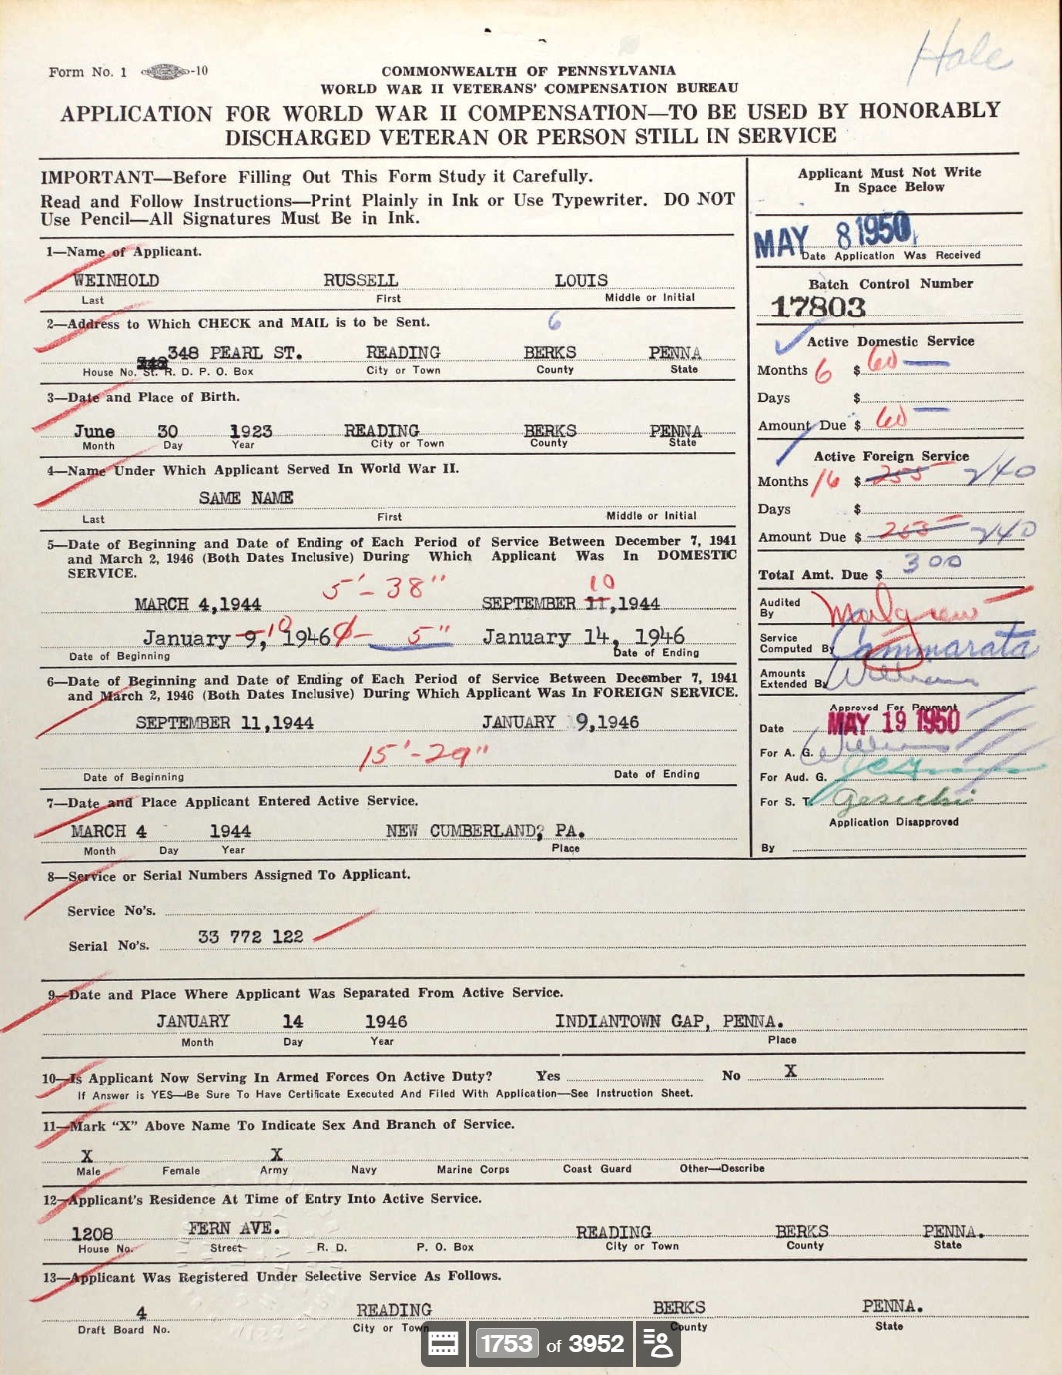 Hale
Form No. 1 -10
COMMONWEALTH OF PENNSYLVANIA
WORLD WAR II VETERANS' COMPENSATION BUREAU
APPLICATION FOR WORLD WAR II COMPENSATION—TO BE USED BY HONORABLY
DISCHARGED VETERAN OR PERSON STILL IN SERVICE
IMPORTANT—Before Filling Out This Form Study it Carefully.
Read and Follow Instructions—Print Plainly in Ink or Use Typewriter. DO NOT
Use Pencil—All Signatures Must Be in Ink.
1—Name of Applicant.
WEINHOLD RUSSELL LOUIS
Last First Middle or Initial
2—Address to Which CHECK and MAIL is to be Sent. 6
348 PEARL ST. READING BERKS PENNA
House No. St. R. D. P. O. Box City or Town County State
3—Date and Place of Birth.
June 30 1923 READING BERKS PENNA
Month Day Year City or Town County State
4—Name Under Which Applicant Served In World War II.
SAME NAME
Last First Middle or Initial
5—Date of Beginning and Date of Ending of Each Period of Service Between December 7, 1941
and March 2, 1946 (Both Dates Inclusive) During Which Applicant Was In DOMESTIC
SERVICE.
5'-38" 10
MARCH 4,1944 SEPTEMBER 11,1944
January 9, 10 1946 0- 5" January 14, 1946
Date of Beginning Date of Ending
6—Date of Beginning and Date of Ending of Each Period of Service Between December 7, 1941
and March 2, 1946 (Both Dates Inclusive) During Which Applicant Was In FOREIGN SERVICE.
SEPTEMBER 11,1944 JANUARY 9,1946
15'-29"
Date of Beginning Date of Ending
7—Date and Place Applicant Entered Active Service.
MARCH 4 1944 NEW CUMBERLAND, PA.
Month Day Year Place
Applicant Must Not Write
In Space Below
MAY 8 1950
Date Application Was Received
Batch Control Number
17803
Active Domestic Service
Months 6 $ 60 —
Days $
Amount Due $ 60 —
Active Foreign Service
Months 16 $ 255 240
Days $
Amount Due $ 255 240
Total Amt. Due $ 300
Audited
By
Service
Computed By Cammarata
Amounts
Extended By Williams
Approved For Payment
Date MAY 19 1950
For A. G.
For Aud. G.
For S. T.
Application Disapproved
By
8—Service or Serial Numbers Assigned To Applicant.
Service No's.
Serial No's. 33 772 122
9—Date and Place Where Applicant Was Separated From Active Service.
JANUARY 14 1946 INDIANTOWN GAP, PENNA.
Month Day Year Place
10—Is Applicant Now Serving In Armed Forces On Active Duty? Yes No X
If Answer is YES—Be Sure To Have Certificate Executed And Filed With Application—See Instruction Sheet.
11—Mark "X" Above Name To Indicate Sex And Branch of Service.
X X
Male Female Army Navy Marine Corps Coast Guard Other—Describe
12—Applicant's Residence At Time of Entry Into Active Service.
1208 FERN AVE. READING BERKS PENNA.
House No. Street R. D. P. O. Box City or Town County State
13—Applicant Was Registered Under Selective Service As Follows.
4 READING BERKS PENNA.
Draft Board No. City or Town County State
1753 of 3952